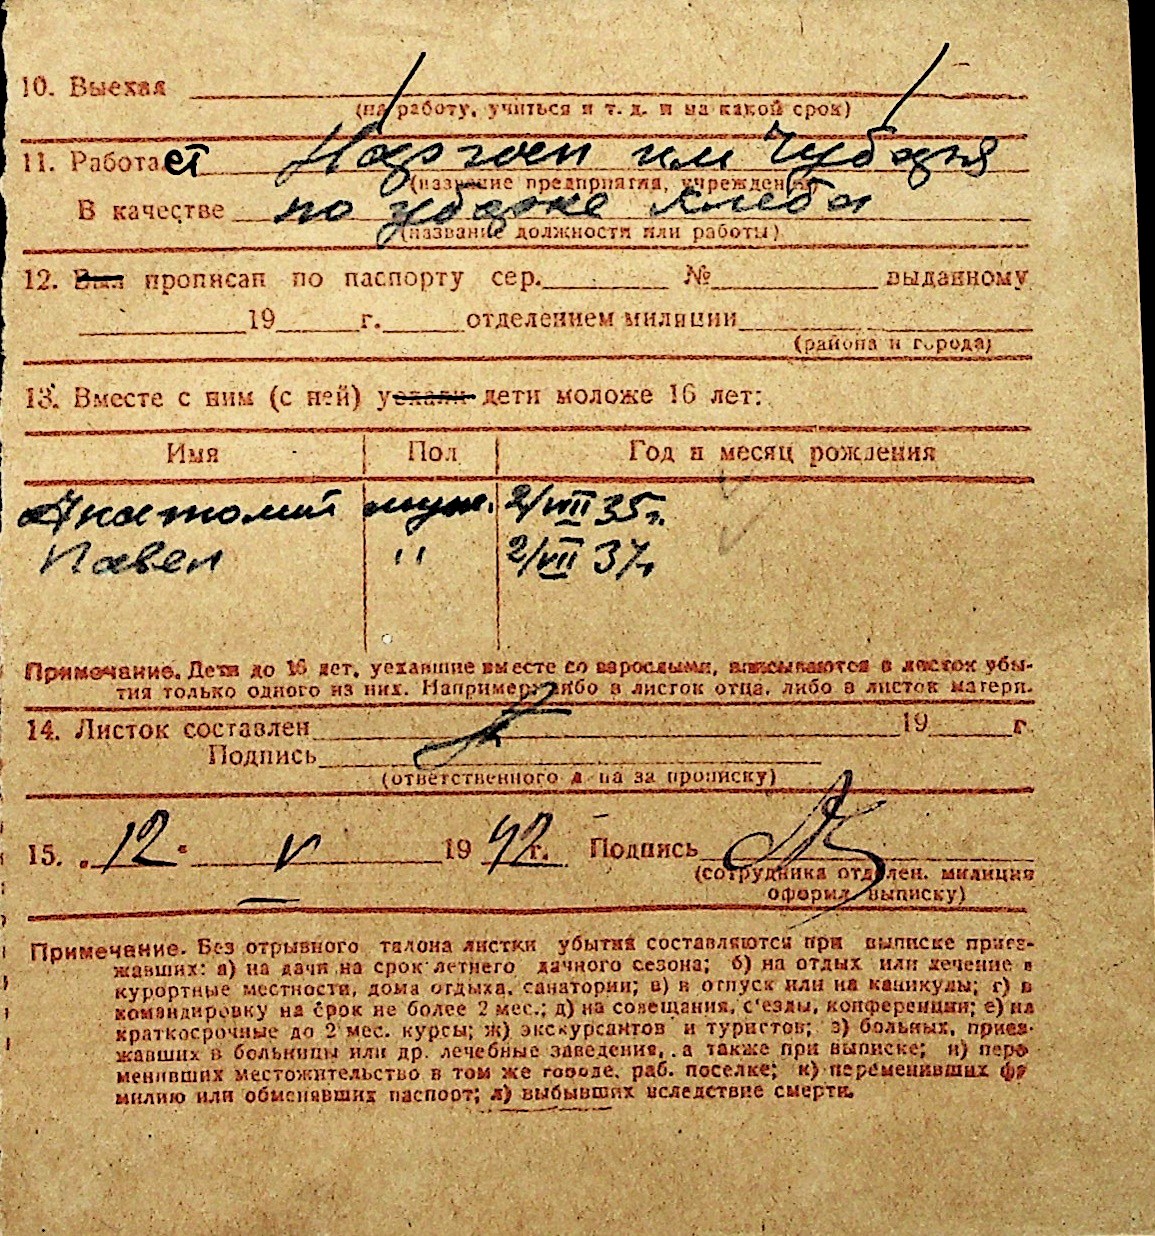 10. Выехал
(на работу, учиться и т. д. и на какой срок)
11. Работает им Чубаря
(название предприятия, учреждения)
В качестве по уборке хлеба
(название должности или работы)
12. Был прописан по паспорту сер. № выданному
19 г. отделением милиции
(района и города)
13. Вместе с ним (с ней) уехали дети моложе 16 лет:
Имя Пол Год и месяц рождения
Анатолий муж. 2/VII 35 г.
Павел " 2/VII 37 г.
Примечание. Дети до 16 лет, уехавшие вместе со взрослыми, вписываются в листок убы-
тия только одного из них. Например: либо в листок отца, либо в листок матери.
14. Листок составлен 19 г.
Подпись
(ответственного л-ца за прописку)
15. „ 12 " V 19 42 г. Подпись
(сотрудника отделен. милиции
оформл. выписку)
Примечание. Без отрывного талона листки убытия составляются при выписке приез-
жавших: а) на дачи на срок летнего дачного сезона; б) на отдых или лечение в
курортные местности, дома отдыха, санатории; в) в отпуск или на каникулы; г) в
командировку на срок не более 2 мес.; д) на совещания, с'езды, конференции; е) на
краткосрочные до 2 мес. курсы; ж) экскурсантов и туристов; з) больных, приез-
жавших в больницы или др. лечебные заведения, а также при выписке; и) пере
менивших местожительство в том же городе, раб. поселке; к) переменивших фа
милию или обменявших паспорт; л) выбывших вследствие смерти.